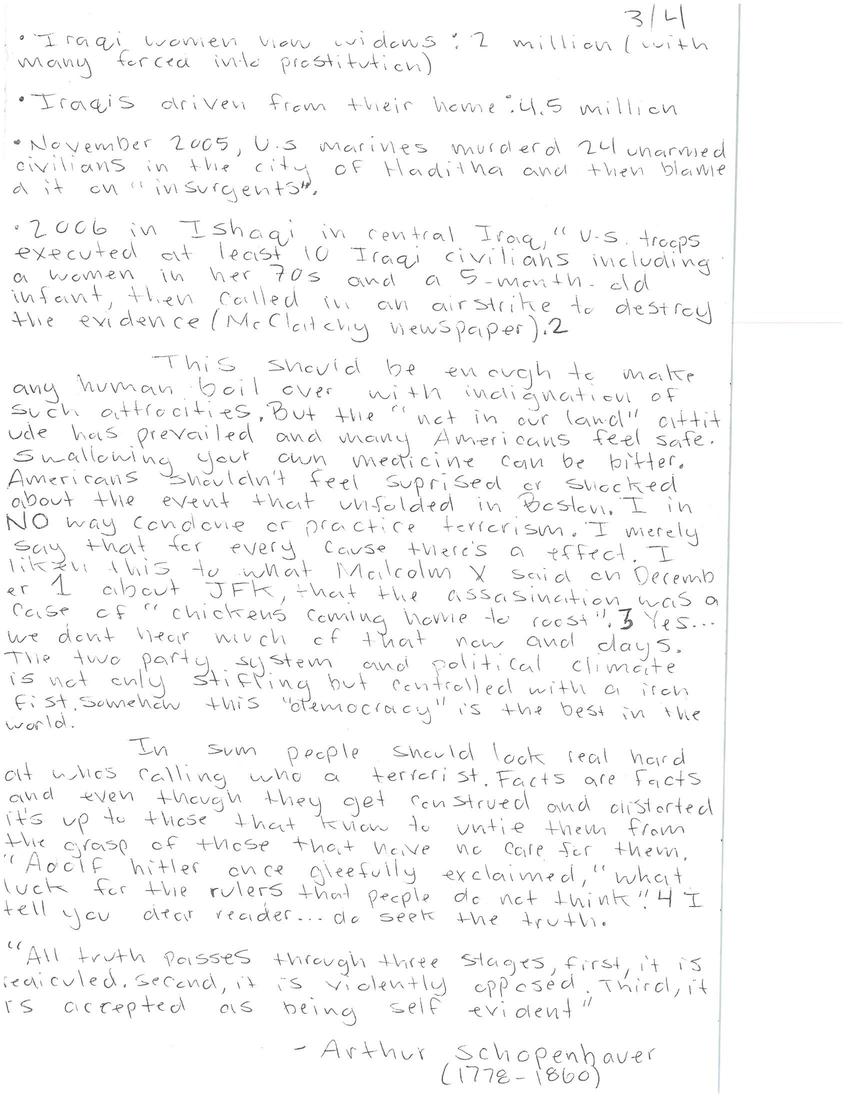 3/4
• Iraqi women now widows: 2 million (with
many forced into prostitution)
• Iraqis driven from their home: 4.5 million
• November 2005, U.S marines murderd 24 unarmed
civilians in the city of Haditha and then blame
d it on "insurgents".
• 2006 in Ishaqi in central Iraq, "U.S. troops
executed at least 10 Iraqi civilians including
a women in her 70s and a 5-month-old
infant, then called in an airstrike to destroy
the evidence (McClatchy newspaper).2
This should be enough to make
any human boil over with indignation of
such attrocities. But the "not in our land" attit
ude has prevailed and many Americans feel safe.
Swallowing your own medicine can be bitter.
Americans shouldn't feel suprised or shocked
about the event that unfolded in Boston. I in
NO way condone or practice terrorism. I merely
say that for every cause there's a effect. I
liken this to what Malcolm X said on Decemb
er 1 about JFK, that the assasination was a
case of "chickens coming home to roost". 3 Yes...
we dont hear much of that now and days.
The two party system and political climate
is not only stifling but controlled with a iron
fist. Somehow this "democracy" is the best in the
world.
In sum people should look real hard
at who's calling who a terrorist. Facts are facts
and even though they get construed and distorted
it's up to those that know to untie them from
the grasp of those that have no care for them.
"Adolf hitler once gleefully exclaimed, "what
luck for the rulers that people do not think". 4 I
tell you dear reader... do seek the truth.
"All truth passes through three stages, first, it is
rediculed. Second, it is violently opposed. Third, it
is accepted as being self evident"
- Arthur Schopenhauer
(1778-1860)